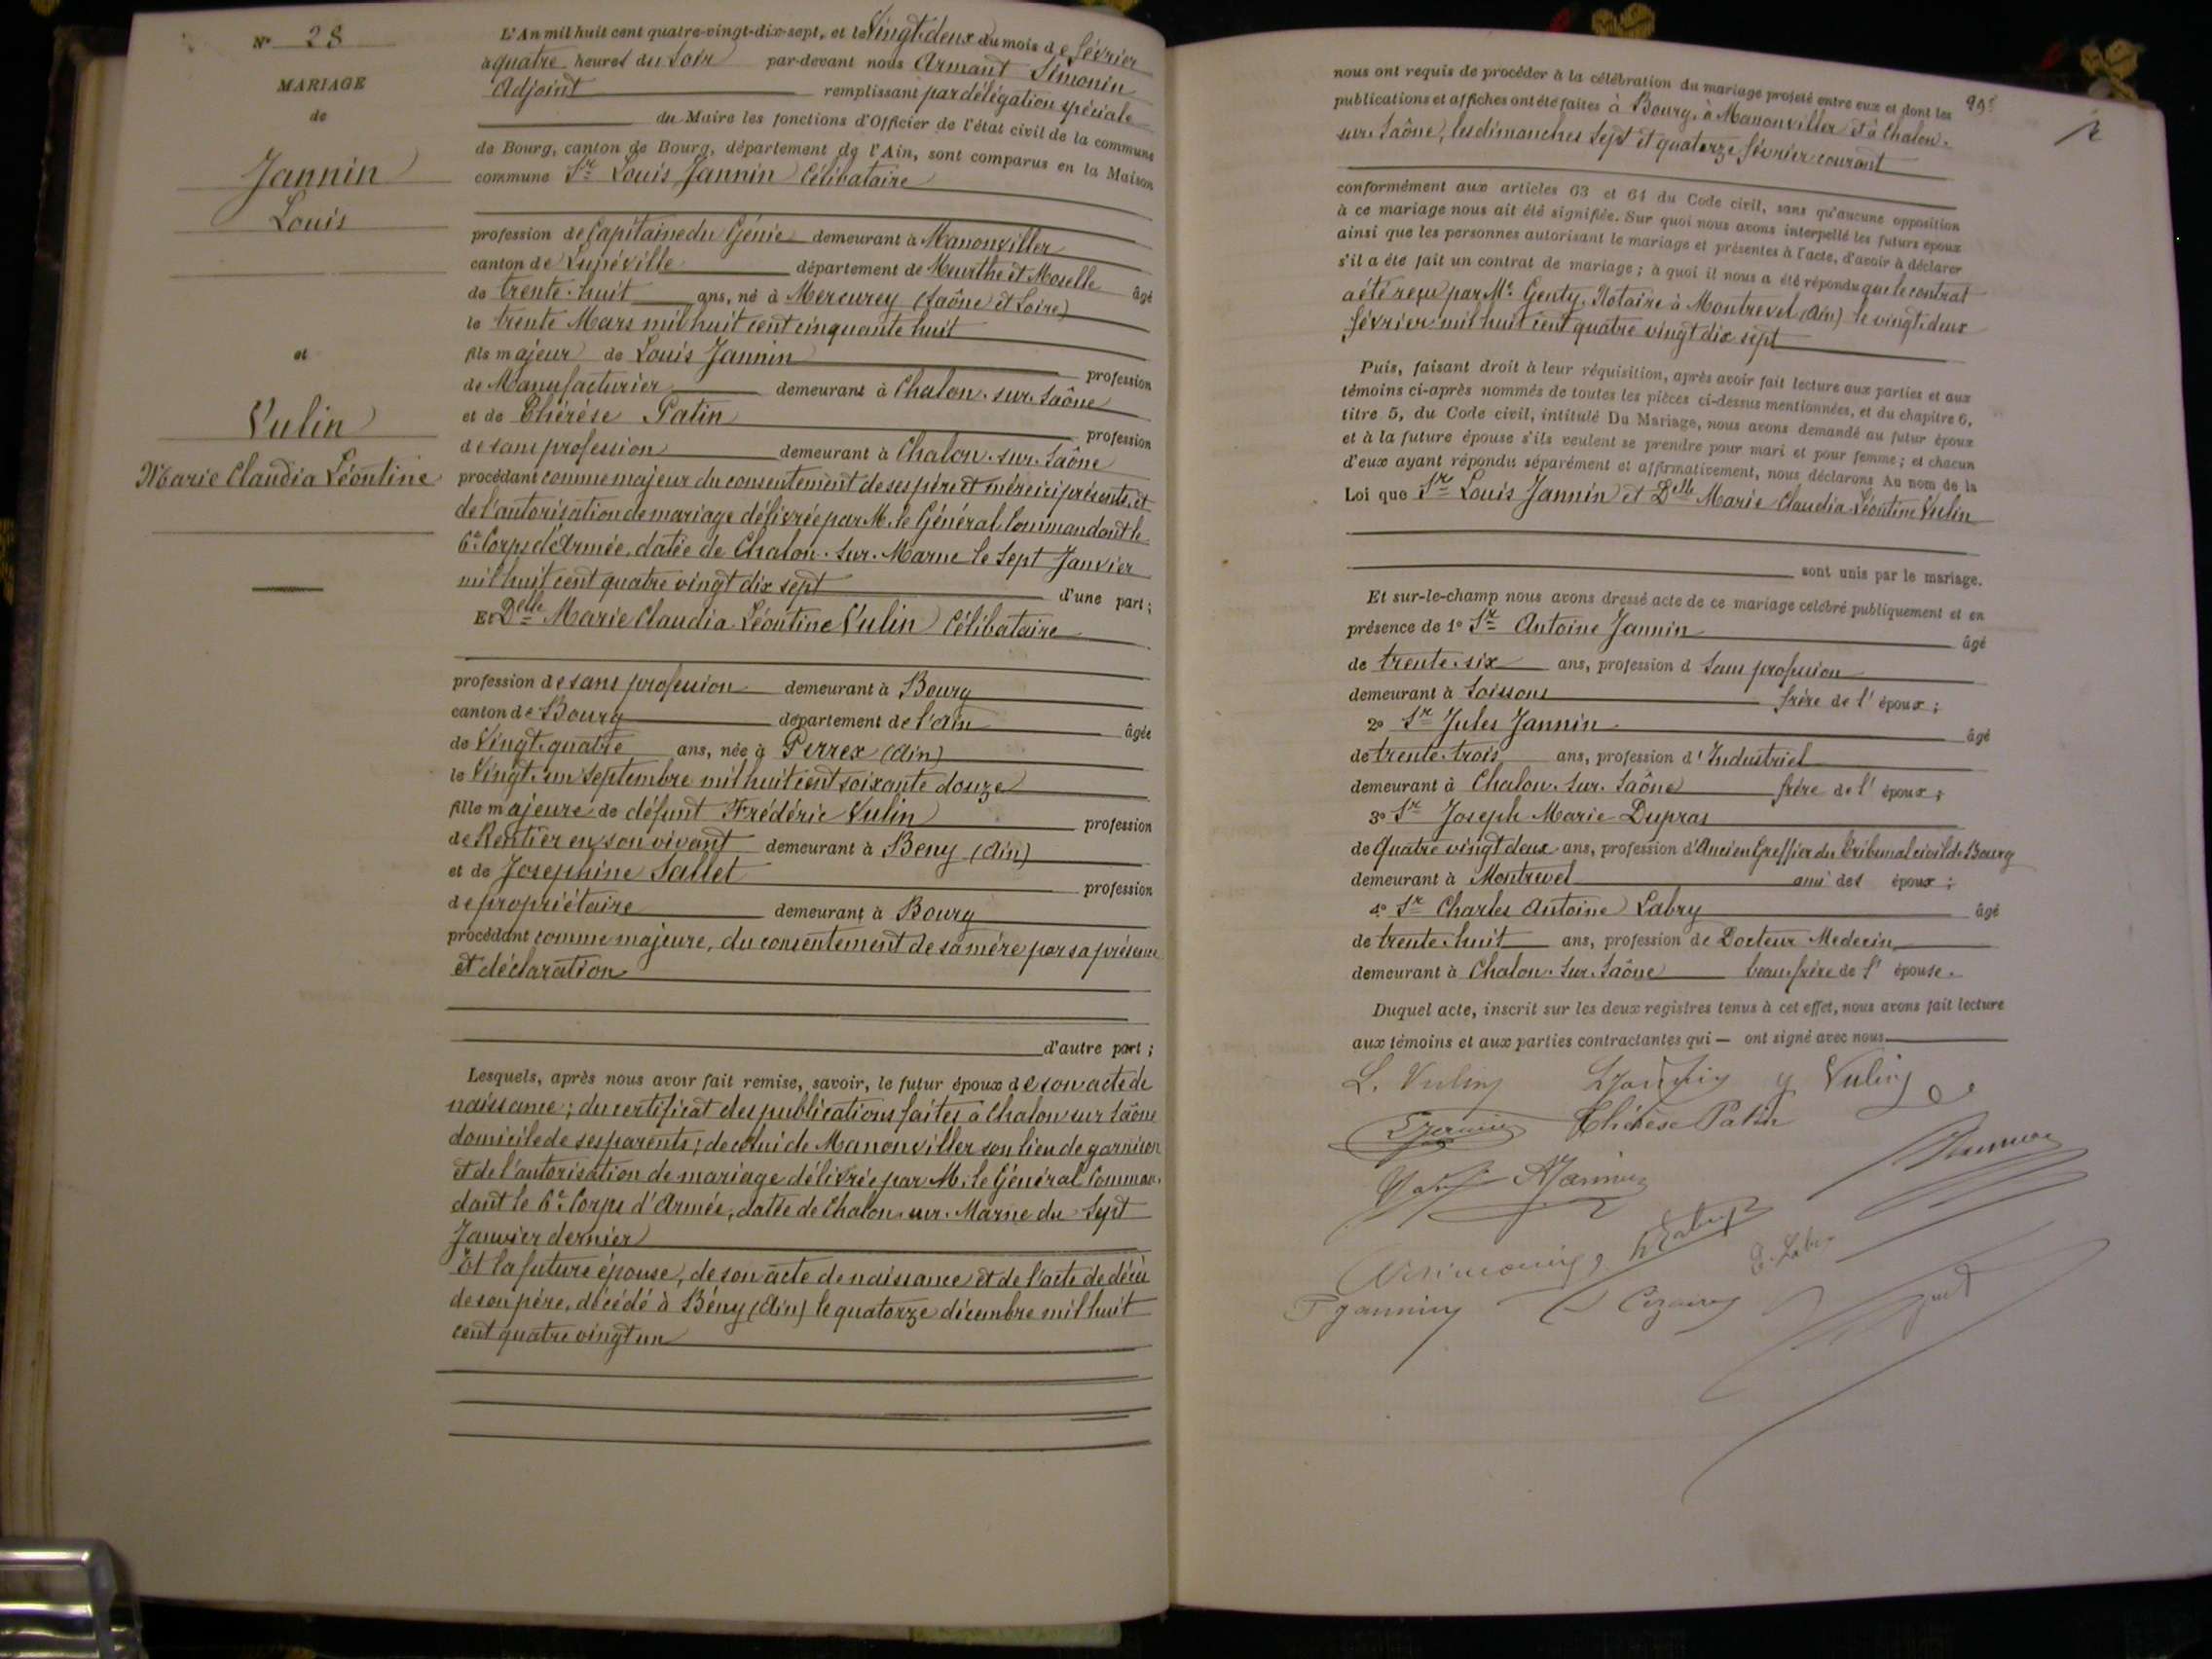 N° 28
MARIAGE
de
Jannin
Louis
et
Vulin
Marie Claudia Léontine
L'An mil huit cent quatre-vingt-dix-sept, et le Vingt-deux du mois de février
à quatre heures du Soir par-devant nous Armant Simonin
Adjoint remplissant par délégation spéciale
du Maire les fonctions d'Officier de l'état civil de la commune
de Bourg, canton de Bourg, département de l'Ain, sont comparus en la Maison
commune Sr Louis Jannin Célibataire
profession de Capitaine du Génie demeurant à Manonviller
canton de Lunéville département de Meurthe et Moselle âgé
de trente-huit ans, né à Mercurey (Saône et Loire)
le trente Mars mil huit cent cinquante huit
fils majeur de Louis Jannin profession
de Manufacturier demeurant à Chalon-sur-Saône
et de Thérèse Patin profession
de sans profession demeurant à Chalon-sur-Saône
procédant comme majeur du consentement de ses père et mère ici présents, et
de l'autorisation de mariage délivrée par M. le Général Commandant le
6e Corps d'Armée, datée de Chalon-sur-Marne le Sept Janvier
mil huit cent quatre vingt dix sept d'une part ;
Et Delle Marie Claudia Léontine Vulin Célibataire
profession de sans profession demeurant à Bourg
canton de Bourg département de l'Ain âgée
de Vingt-quatre ans, née à Perrex (Ain)
le Vingt-un Septembre mil huit cent soixante douze
fille majeure de défunt Frédéric Vulin profession
de Rentier en son vivant demeurant à Beny (Ain)
et de Josephine Sallet profession
de propriétaire demeurant à Bourg
procédant comme majeure, du consentement de sa mère par sa présence
et déclaration
d'autre part ;
Lesquels, après nous avoir fait remise, savoir, le futur époux de son acte de
naissance ; du certificat des publications faites à Chalon sur Saône
domicile de ses parents ; de celui de Manonviller son lieu de garnison
et de l'autorisation de mariage délivrée par M. le Général Comman-
dant le 6e Corps d'Armée, datée de Chalon-sur-Marne du Sept
Janvier dernier
Et la future épouse, de son acte de naissance et de l'acte de décès
de son père, décédé à Bény (Ain) le quatorze décembre mil huit
cent quatre vingt un
nous ont requis de procéder à la célébration du mariage projeté entre eux et dont les
publications et affiches ont été faites à Bourg, à Manonviller et à Chalon-
sur-Saône, les dimanches Sept et quatorze février courant
conformément aux articles 63 et 64 du Code civil, sans qu'aucune opposition
à ce mariage nous ait été signifiée. Sur quoi nous avons interpellé les futurs époux
ainsi que les personnes autorisant le mariage et présentes à l'acte, d'avoir à déclarer
s'il a été fait un contrat de mariage ; à quoi il nous a été répondu que le contrat
a été reçu par Me Genty, Notaire à Montrevel (Ain) le vingt-deux
février mil huit cent quatre vingt dix sept
Puis, faisant droit à leur réquisition, après avoir fait lecture aux parties et aux
témoins ci-après nommés de toutes les pièces ci-dessus mentionnées, et du chapitre 6,
titre 5, du Code civil, intitulé Du Mariage, nous avons demandé au futur époux
et à la future épouse s'ils veulent se prendre pour mari et pour femme ; et chacun
d'eux ayant répondu séparément et affirmativement, nous déclarons Au nom de la
Loi que Sr Louis Jannin et Delle Marie Claudia Léontine Vulin
sont unis par le mariage.
Et sur-le-champ nous avons dressé acte de ce mariage célébré publiquement et en
présence de 1° Sr Antoine Jannin âgé
de trente-six ans, profession d Sans profession
demeurant à Soissons frère de l'époux ;
2° Sr Jules Jannin âgé
de trente-trois ans, profession d'Industriel
demeurant à Chalon-Sur-Saône frère de l'époux ;
3° Sr Joseph Marie Dupras
de Quatre vingt deux ans, profession d'Ancien Greffier du Tribunal civil de Bourg
demeurant à Montrevel ami des époux ;
4° Sr Charles Antoine Labry âgé
de trente-huit ans, profession de Docteur Medecin
demeurant à Chalon-Sur-Saône beau-frère de l'épouse.
Duquel acte, inscrit sur les deux registres tenus à cet effet, nous avons fait lecture
aux témoins et aux parties contractantes qui — ont signé avec nous
L. Vulin L Jannin Vulin
Thérèse Patin
A Jannin
Jannin